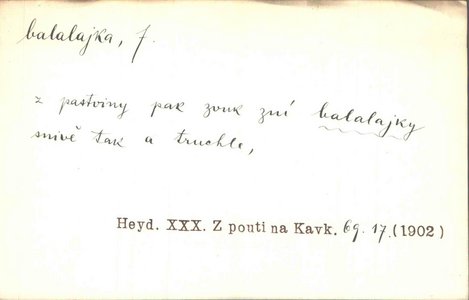 balalajka, f.
z pastviny pak zvuk zní balalajky
snivě tak a truchle,
Heyd. XXX. Z pouti na Kavk. 69. 17. (1902)